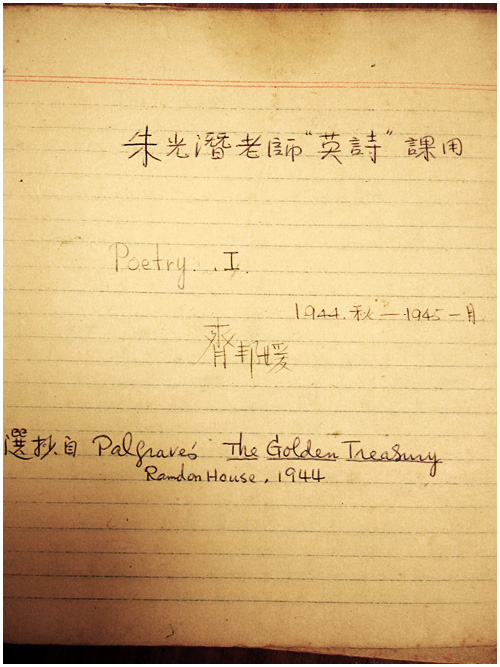 朱光潛老師"英詩"課用
Poetry...I.
1944.秋—1945一月
齊邦媛
選抄自 Palgrave's The Golden Treasury
Ramdon House, 1944